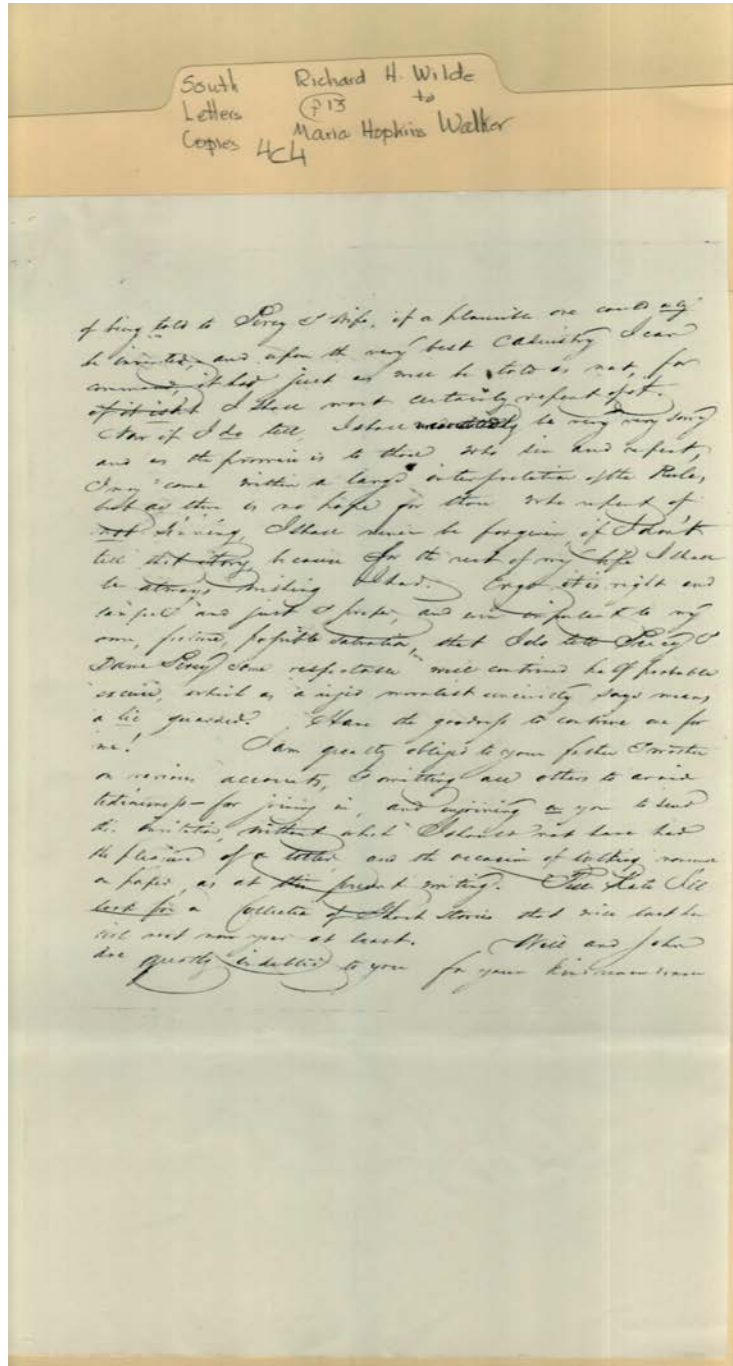 South Richard H. Wilde
Letters P13 to
Copies 4C4 Maria Hopkins Walker
of being told to Percy & Wife, if a plausible one could only
be invented, and upon the very best Casuistry I can
command, it had just as well be told as not, for
if it isn't I shall most certainly repent of it.
Now if I do tell, I shall be very very sorry
and as the promise is to those who sin and repent,
I may come within a large interpretation of the Rule,
but as there is no hope for those who repent of
not sinning, I shall never be forgiven if I don't
tell that story, because for the rest of my life I shall
be always wishing I had. Ergo it is right and
lawful and just & proper, and even important to my
own, future, possible salvation, that I do tell Percy &
Dame Percy some respectable well contrived half probable
excuse, which as a rigid moralist sincerely says means
a lie guarded. Have the goodness to contrive one for
me! I am greatly obliged to your father & mother
on various accounts, & omitting all others to avoid
tediousness – for joining in, and enjoining on you to send
the invitation, without which I should not have had
the pleasure of a letter and the occasion of talking nonsense
on paper, as at this present writing. Tell Kate I'll
look for a Collection of Short Stories that will last her
till next new year at least. Will and John
are greatly indebted to you for your kind remembrance